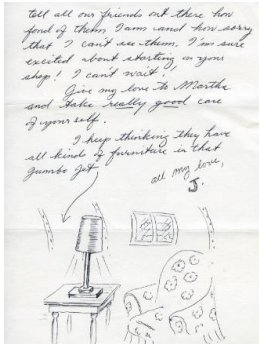 tell all our friends out there how
fond of them I am and how sorry
that I can't see them. I'm sure
excited about starting in your
shop! I can't wait!
Give my love to Martha
and take really good care
of yourself.
I keep thinking they have
all kinds of furniture in that
Jumbo Jet
all my love,
J.